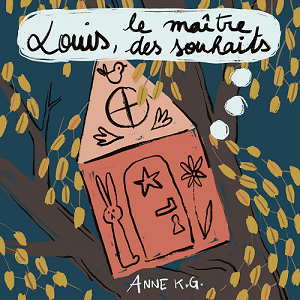 Louis, le maître
des souhaits
ANNE K.G.